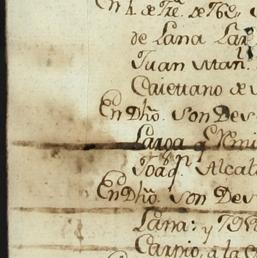 En 4. de
de Lana Lar
Juan Man.
Caietano de
En Dho. son Des
Larga q
Joaqn. Alcala
En Dho. son Des
Lana: y
Carpio, a la